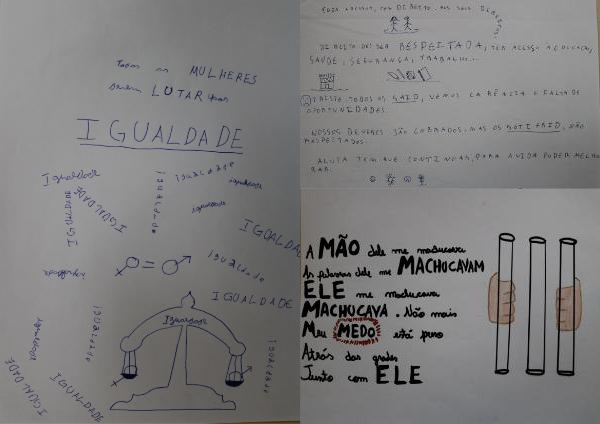 todas as MULHERES
devem LUTAR por
IGUALDADE
Igualdade
IGUALDADE
IGUALDADE
igualdade
igualdade
igualdade
igualdade
IGUALDADE
igualdade
IGUALDADE
Igualdade
igualdade
igualdade
IGUALDADE
IGUALDADE
TODA PESSOA, TEM DIREITO, MAS SEUS DEVERES.
DIREITO DE: SER RESPEITADA, TER ACESSO A EDUCAÇÃO,
SAÚDE, SEGURANÇA, TRABALHO...
TODOS OS VEMOS CARÊNCIA E FALTA DE
OPORTUNIDADES
NOSSOS DEVERES SÃO COBRADOS, MAS OS NÃO
RESPEITADOS.
A LUTA TEM QUE CONTINUAR, PARA A VIDA PODER MELHO
RAR.
A MÃO dele me machucava
As palavras dele me MACHUCAVAM
ELE me machucava
MACHUCAVA. Não mais
Meu MEDO está preso
Atrás das grades
Junto com ELE